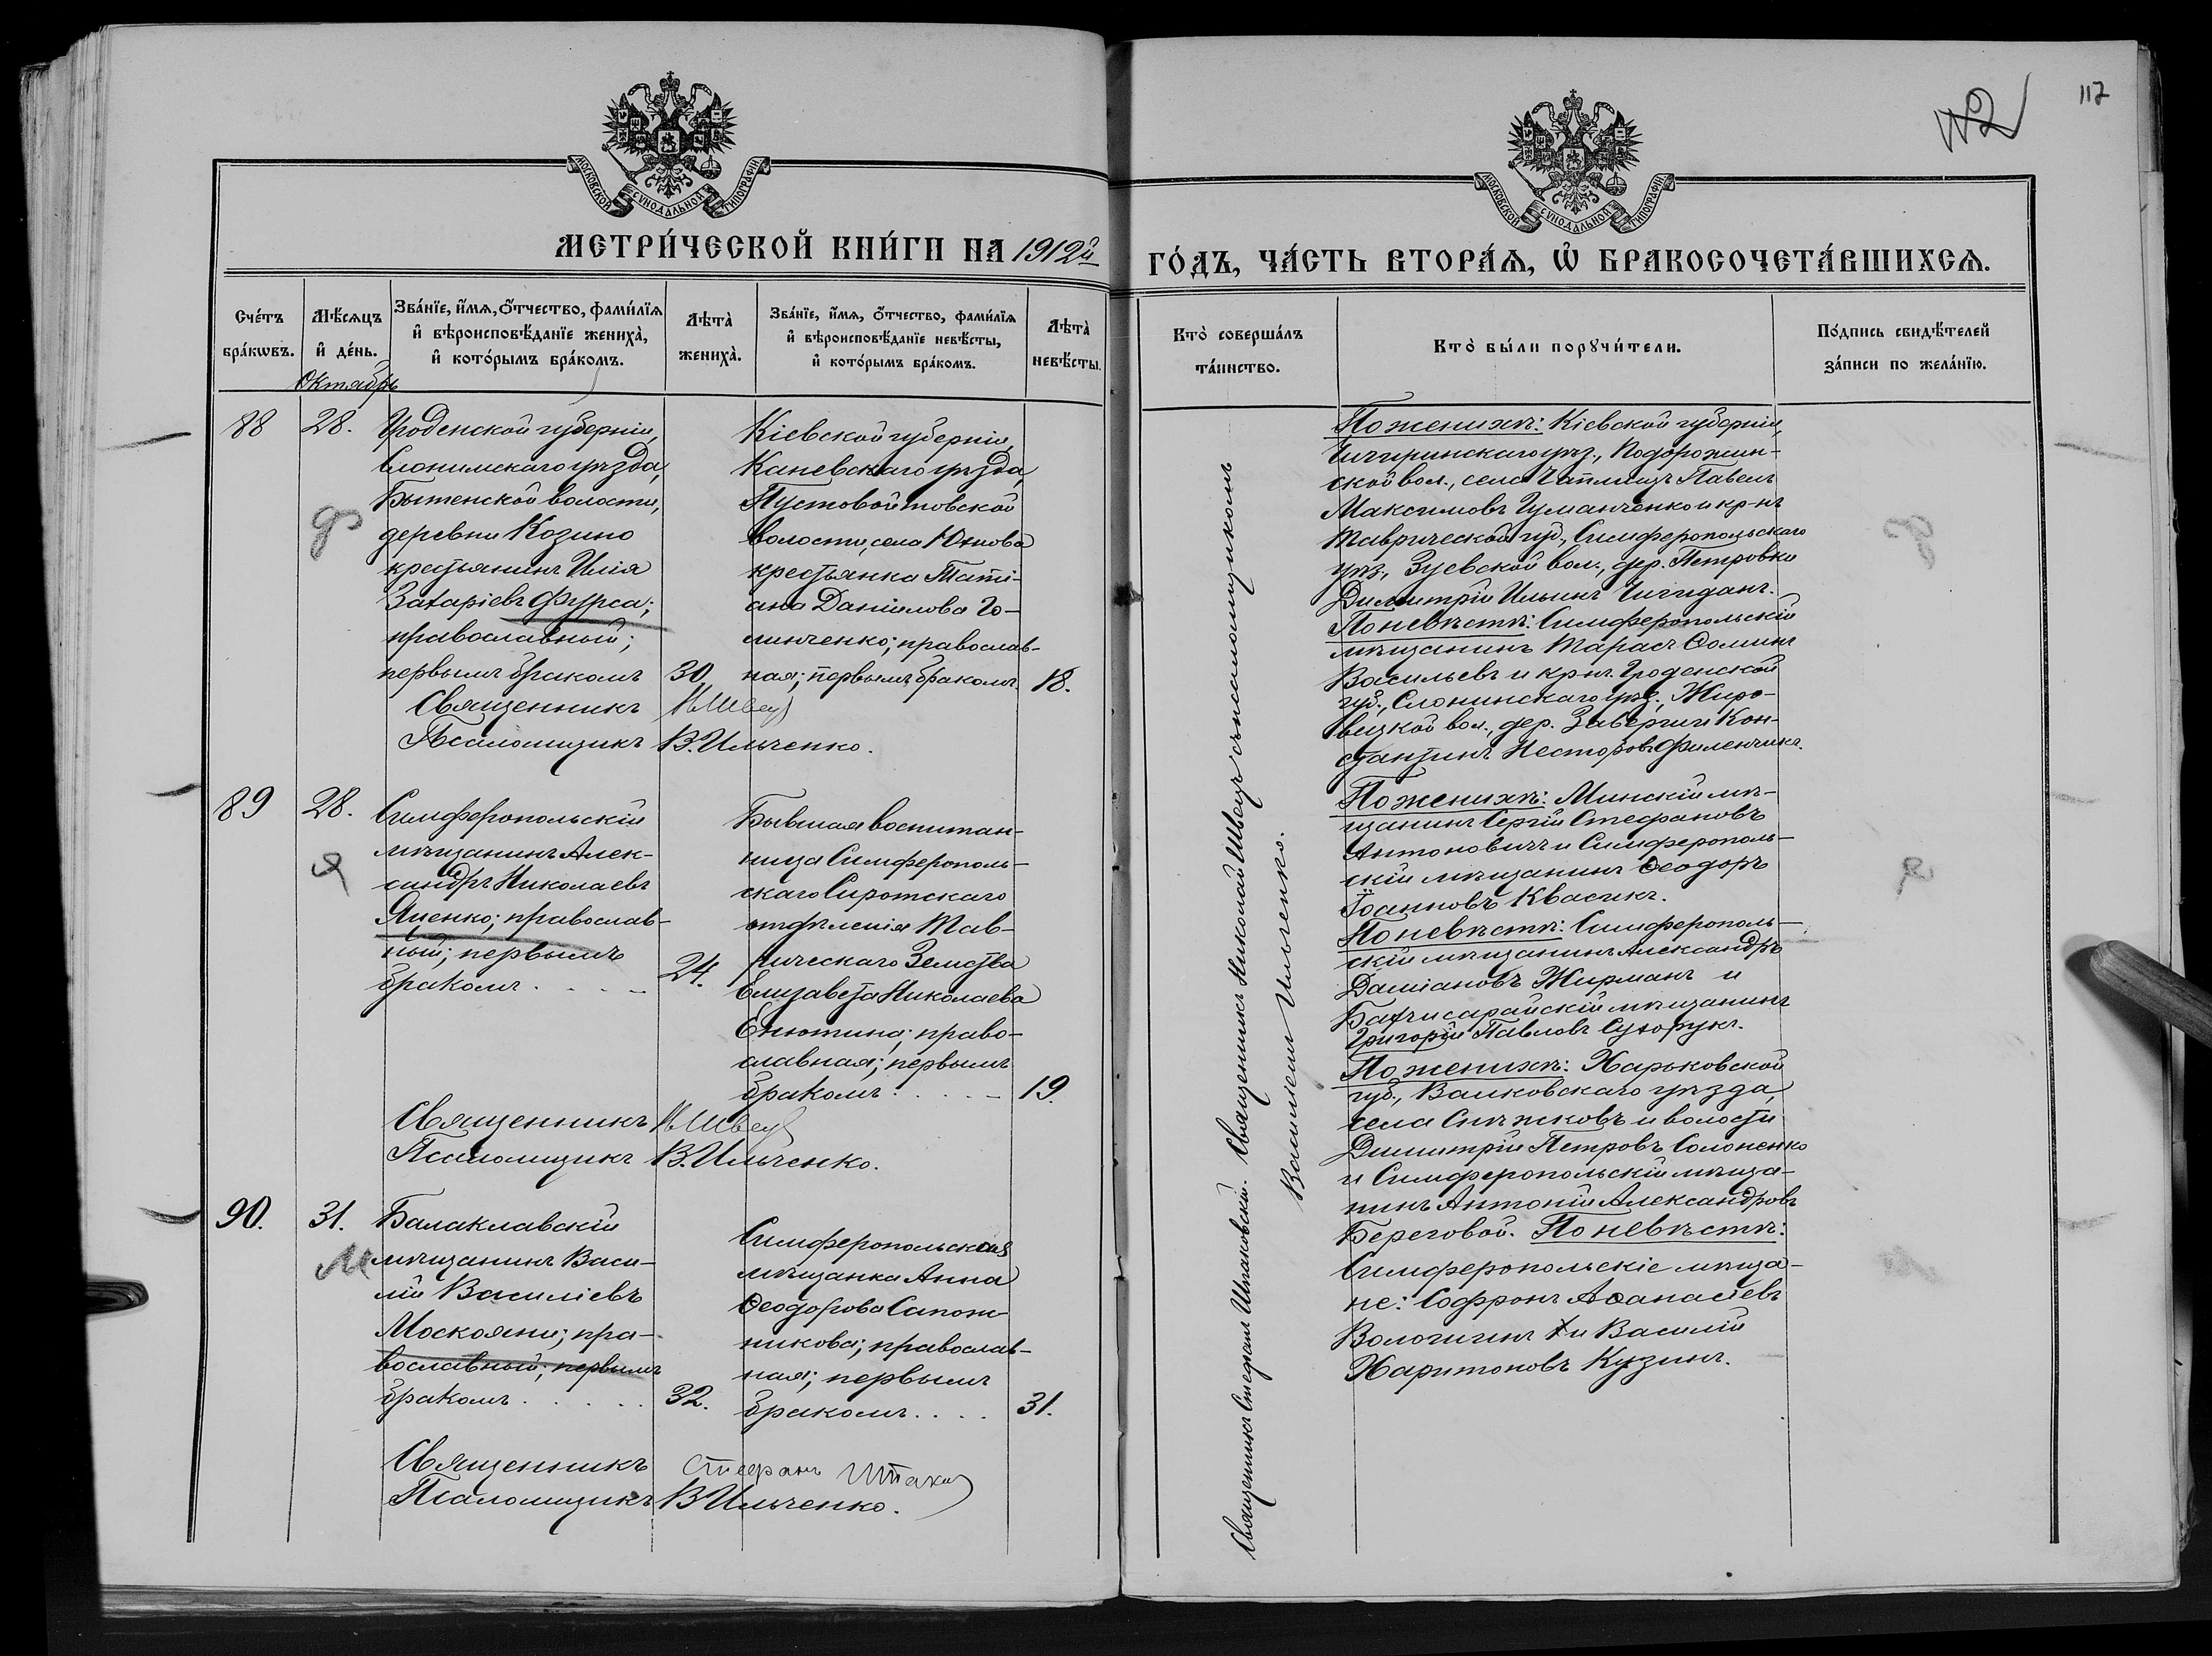 112
117
МОСКОВСКОЙ СѴНОДАЛЬНОЙ ТИПОГРАФІИ
МОСКОВСКОЙ СѴНОДАЛЬНОЙ ТИПОГРАФІИ
МЕТРИ́ЧЕСКОЙ КНИ́ГИ НА 1912й
ГО́ДЪ, ЧА́СТЬ ВТОРА́Ѧ, Ѡ҆ БРАКОСОЧЕТА́ВШИХСѦ.
Сче́тъ бра́кѡвъ.
Мѣ́сѧцъ и҆ де́нь.
Зва́нїе, и҆́мѧ, ѻ҆́тчество, фами́лїѧ
и҆ вѣроисповѣ́данїе жениха̀,
и҆ кото́рымъ бра́комъ.
Лѣта̀ жениха̀.
Зва́нїе, и҆́мѧ, ѻ҆́тчество, фами́лїѧ
и҆ вѣроисповѣ́данїе невѣ́сты,
и҆ кото́рымъ бра́комъ.
Лѣта̀ невѣ́сты.
Кто̀ соверша́лъ та́инство.
Кто̀ бы́ли порꙋчи́тели.
По́дпись свидѣ́телей
за́писи по жела́нїю.
Октябрь
88
28.
Гроденской губерніи,
Слонимскаго уѣзда,
Бытенской волости,
деревни Козино
крестьянинъ Илія
Захаріевъ Фурса;
православный;
первымъ бракомъ
30.
Кіевской губерніи,
Каневскаго уѣзда,
Пустовойтовской
волости, села Юхнова
крестьянка Таті-
ана Даніилова Го-
линченко; православ-
ная; первымъ бракомъ.
18.
Священникъ Н Швец
Псаломщикъ В. Ильченко.
По женихѣ: Кіевской губерніи,
Чигиринскаго уѣз., Подорожин-
ской вол., села Чаплищъ Павелъ
Максимовъ Гуманченко и кр-нъ
Таврической губ., Симферопольскаго
уѣз., Зуевской вол., дер. Петровки
Димитрій Ильинъ Чигиданъ.
По невѣстѣ: Симферопольскій
мѣщанинъ Тарасъ Ѳоминъ
Васильевъ и кр-нъ Гроденской
губ., Слонимскаго уѣз., Жиро-
вицкой вол., дер. Завершье Кон-
стантинъ Несторовъ Филенчикъ.
89
28.
я
Симферопольскій
мѣщанинъ Алек-
сандръ Николаевъ
Яценко; православ-
ный; первымъ
бракомъ . . . .
24.
Бывшая воспитан-
ница Симферополь-
скаго Сиротскаго
отдѣленія Тав-
рическаго Земства
Елизавета Николаева
Енютина; право-
славная; первымъ
бракомъ . . . .
19.
Священникъ Н Швец
Псаломщикъ В. Ильченко.
По женихѣ: Минскій мѣ-
щанинъ Сергій Стефановъ
Антоновичъ и Симферополь-
скій мѣщанинъ Ѳеодоръ
Іоанновъ Квасикъ.
По невѣстѣ: Симферополь-
скій мѣщанинъ Александръ
Даміановъ Жирманъ и
Бахчисарайскій мѣщанинъ
Григорій Павловъ Сухорукъ.
90.
31.
М
Балаклавскій
мѣщанинъ Васи-
лій Василіевъ
Москояни; пра-
вославный; первымъ
бракомъ . . . . .
32.
Симферопольская
мѣщанка Анна
Ѳеодорова Сапож-
никова; православ-
ная; первымъ
бракомъ . . . .
31.
Священникъ Стефанъ
Псаломщикъ В Ильченко.
По женихѣ: Харьковской
губ., Валковскаго уѣзда,
села Снѣжковъ и волости
Димитрій Петровъ Солоненко
и Симферопольскій мѣща-
нинъ Антоній Александровъ
Береговой. По невѣстѣ:
Симферопольскіе мѣща-
не: Софронъ Аѳанасіевъ
Вологинъ и Василій
Харитоновъ Кузинъ.
Священникъ Стефанъ Шпаковскій. Священникъ Николай Швецъ съ псаломщикомъ
Василіемъ Ильченко.